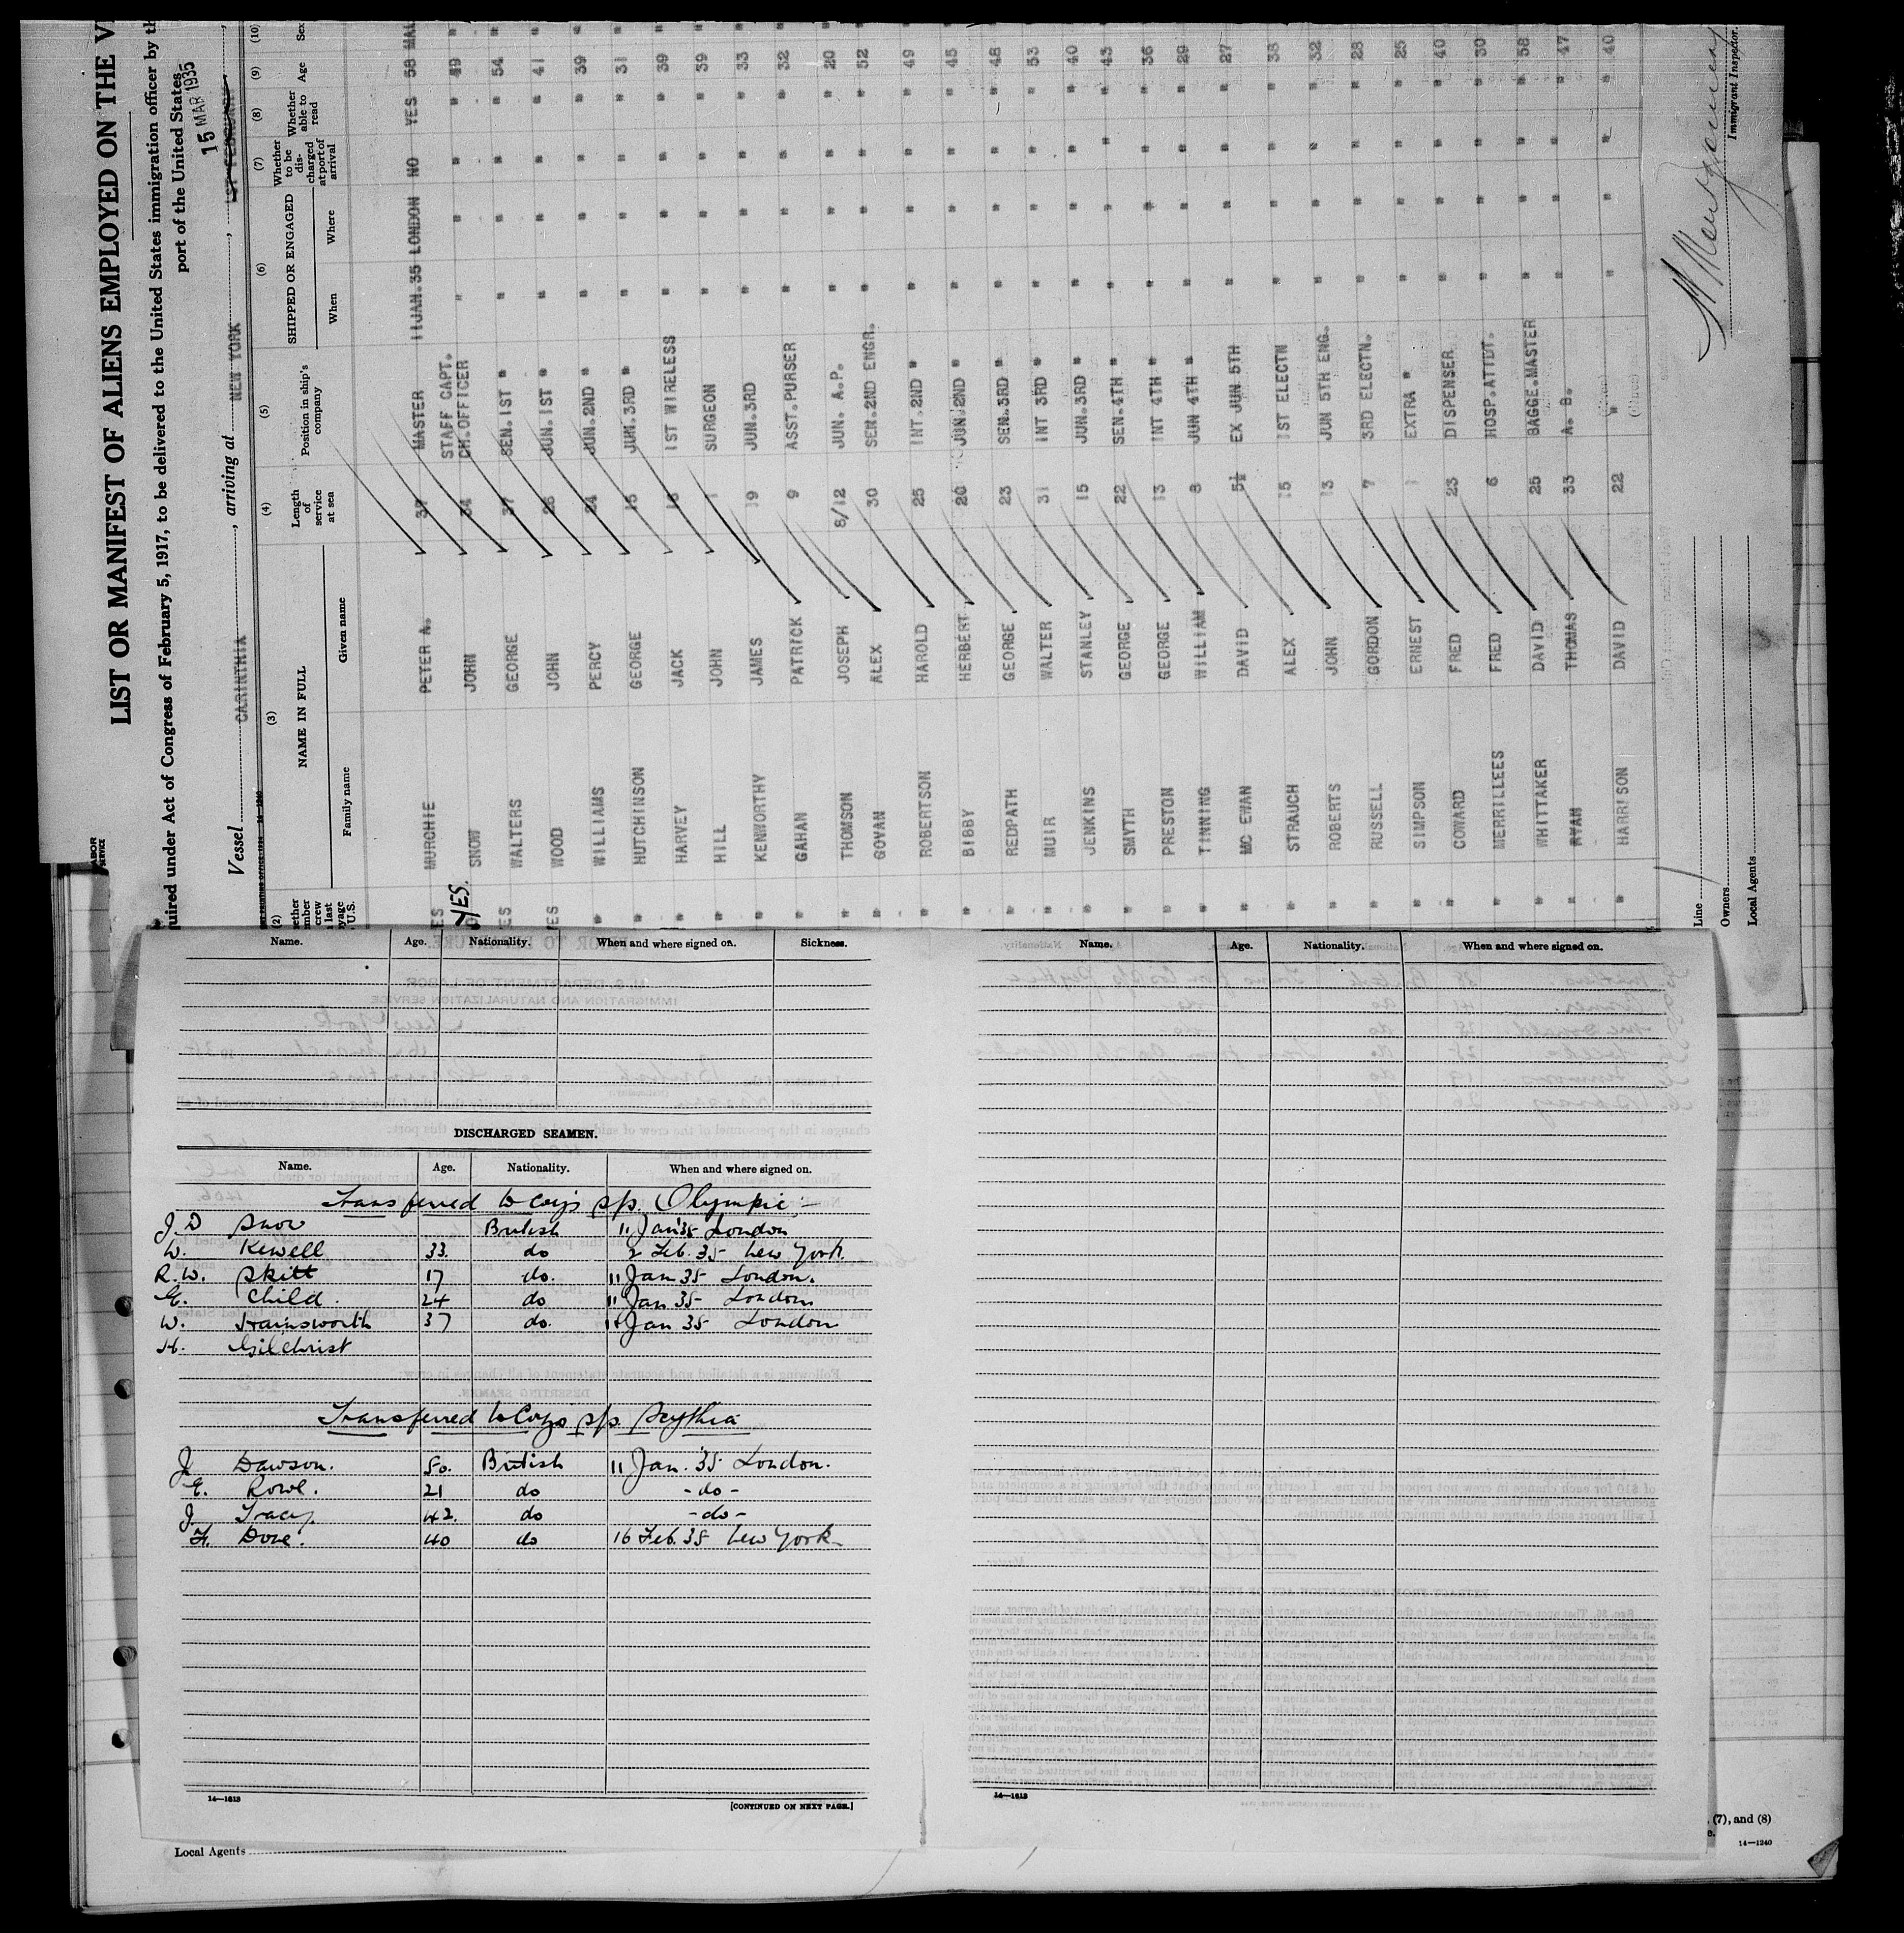 LIST OR MANIFEST OF ALIENS EMPLOYED ON THE V
quired under Act of Congress of February 5, 1917, to be delivered to the United States immigration officer by th
port of the United States
15 MAR 1935
Vessel CARINTHIA, arriving at NEW YORK, 1ST FEBRUARY,
(2) (3) (4) (5) (6) (7) (8) (9) (10)
NAME IN FULL Length of service at sea Position in ship's company SHIPPED OR ENGAGED Whether to be discharged at port of arrival Whether able to read Age Sex
Family name Given name When Where
ES MURCHIE PETER A. 37 MASTER 11JAN.35 LONDON NO YES 58 MAL
YES. SNOW JOHN 34 STAFF CAPT. " " " " 49 "
CH.OFFICER
ES WALTERS GEORGE 37 SEN.1ST " " " " " 54 "
ES WOOD JOHN 26 JUN.1ST " " " " " 41 "
" WILLIAMS PERCY 24 JUN.2ND " " " " " 39 "
" HUTCHINSON GEORGE 15 JUN.3RD " " " " " 31 "
" HARVEY JACK 16 1ST WIRELESS " " " " 39 "
" HILL JOHN 1 SURGEON " " " " 39 "
" KENWORTHY JAMES 19 JUN.3RD " " " " 33 "
" GAHAN PATRICK 9 ASST.PURSER " " " " 32 "
" THOMSON JOSEPH 8/12 JUN. A.P. " " " " 20 "
" GOVAN ALEX 30 SEN.2ND ENGR. " " " " 52 "
" ROBERTSON HAROLD 25 INT.2ND " " " " " 49 "
" BIBBY HERBERT 20 JUN.2ND " " " " " 45 "
" REDPATH GEORGE 23 SEN.3RD " " " " " 48 "
" MUIR WALTER 31 INT 3RD " " " " " 53 "
" JENKINS STANLEY 15 JUN.3RD " " " " " 40 "
" SMYTH GEORGE 22 SEN.4TH " " " " " 43 "
" PRESTON GEORGE 13 INT 4TH " " " " " 36 "
" TINNING WILLIAM 8 JUN 4TH " " " " " 29 "
" MC EWAN DAVID 5½ EX JUN 5TH " " " " 27 "
" STRAUCH ALEX 15 1ST ELECTN " " " " 38 "
" ROBERTS JOHN 13 JUN 5TH ENG. " " " " 32 "
" RUSSELL GORDON 7 3RD ELECTN. " " " " 28 "
" SIMPSON ERNEST 1 EXTRA " " " " " 25 "
" COWARD FRED 23 DISPENSER " " " " 40 "
" MERRILLEES FRED 6 HOSP.ATTDT. " " " " 30 "
" WHITTAKER DAVID 25 BAGGE.MASTER " " " " 58 "
" RYAN THOMAS 33 A. B. 47 "
" HARRISON DAVID 22 " " " " " 40 "
Immigrant Inspector.
Line
Owners
Local Agents
Name. Age. Nationality. When and where signed on. Sickness.
DISCHARGED SEAMEN.
Name. Age. Nationality. When and where signed on.
Transferred to Coy's s/s. Olympic:-
J.D Snow British 11 Jan '35 London
W. Kewell 33. do 2 Feb. 35 New York.
R.W. Skitt 17 do. 11 Jan 35 London.
E. Child. 24 do 11 Jan 35 London
W. Hainsworth 37 do. 11 Jan 35 London
H. Gilchrist
Transferred to Coys s/s. Scythia
J. Dawson. 50. British 11 Jan. '35 London.
E. Rowe. 21 do -do-
J. Tracy. 42. do -do-
F. Dove. 40 do 16 Feb. 35 New York
14—1613
[CONTINUED ON NEXT PAGE.]
Local Agents
Name. Age. Nationality. When and where signed on.
14—1613
(7), and (8)
14—1240